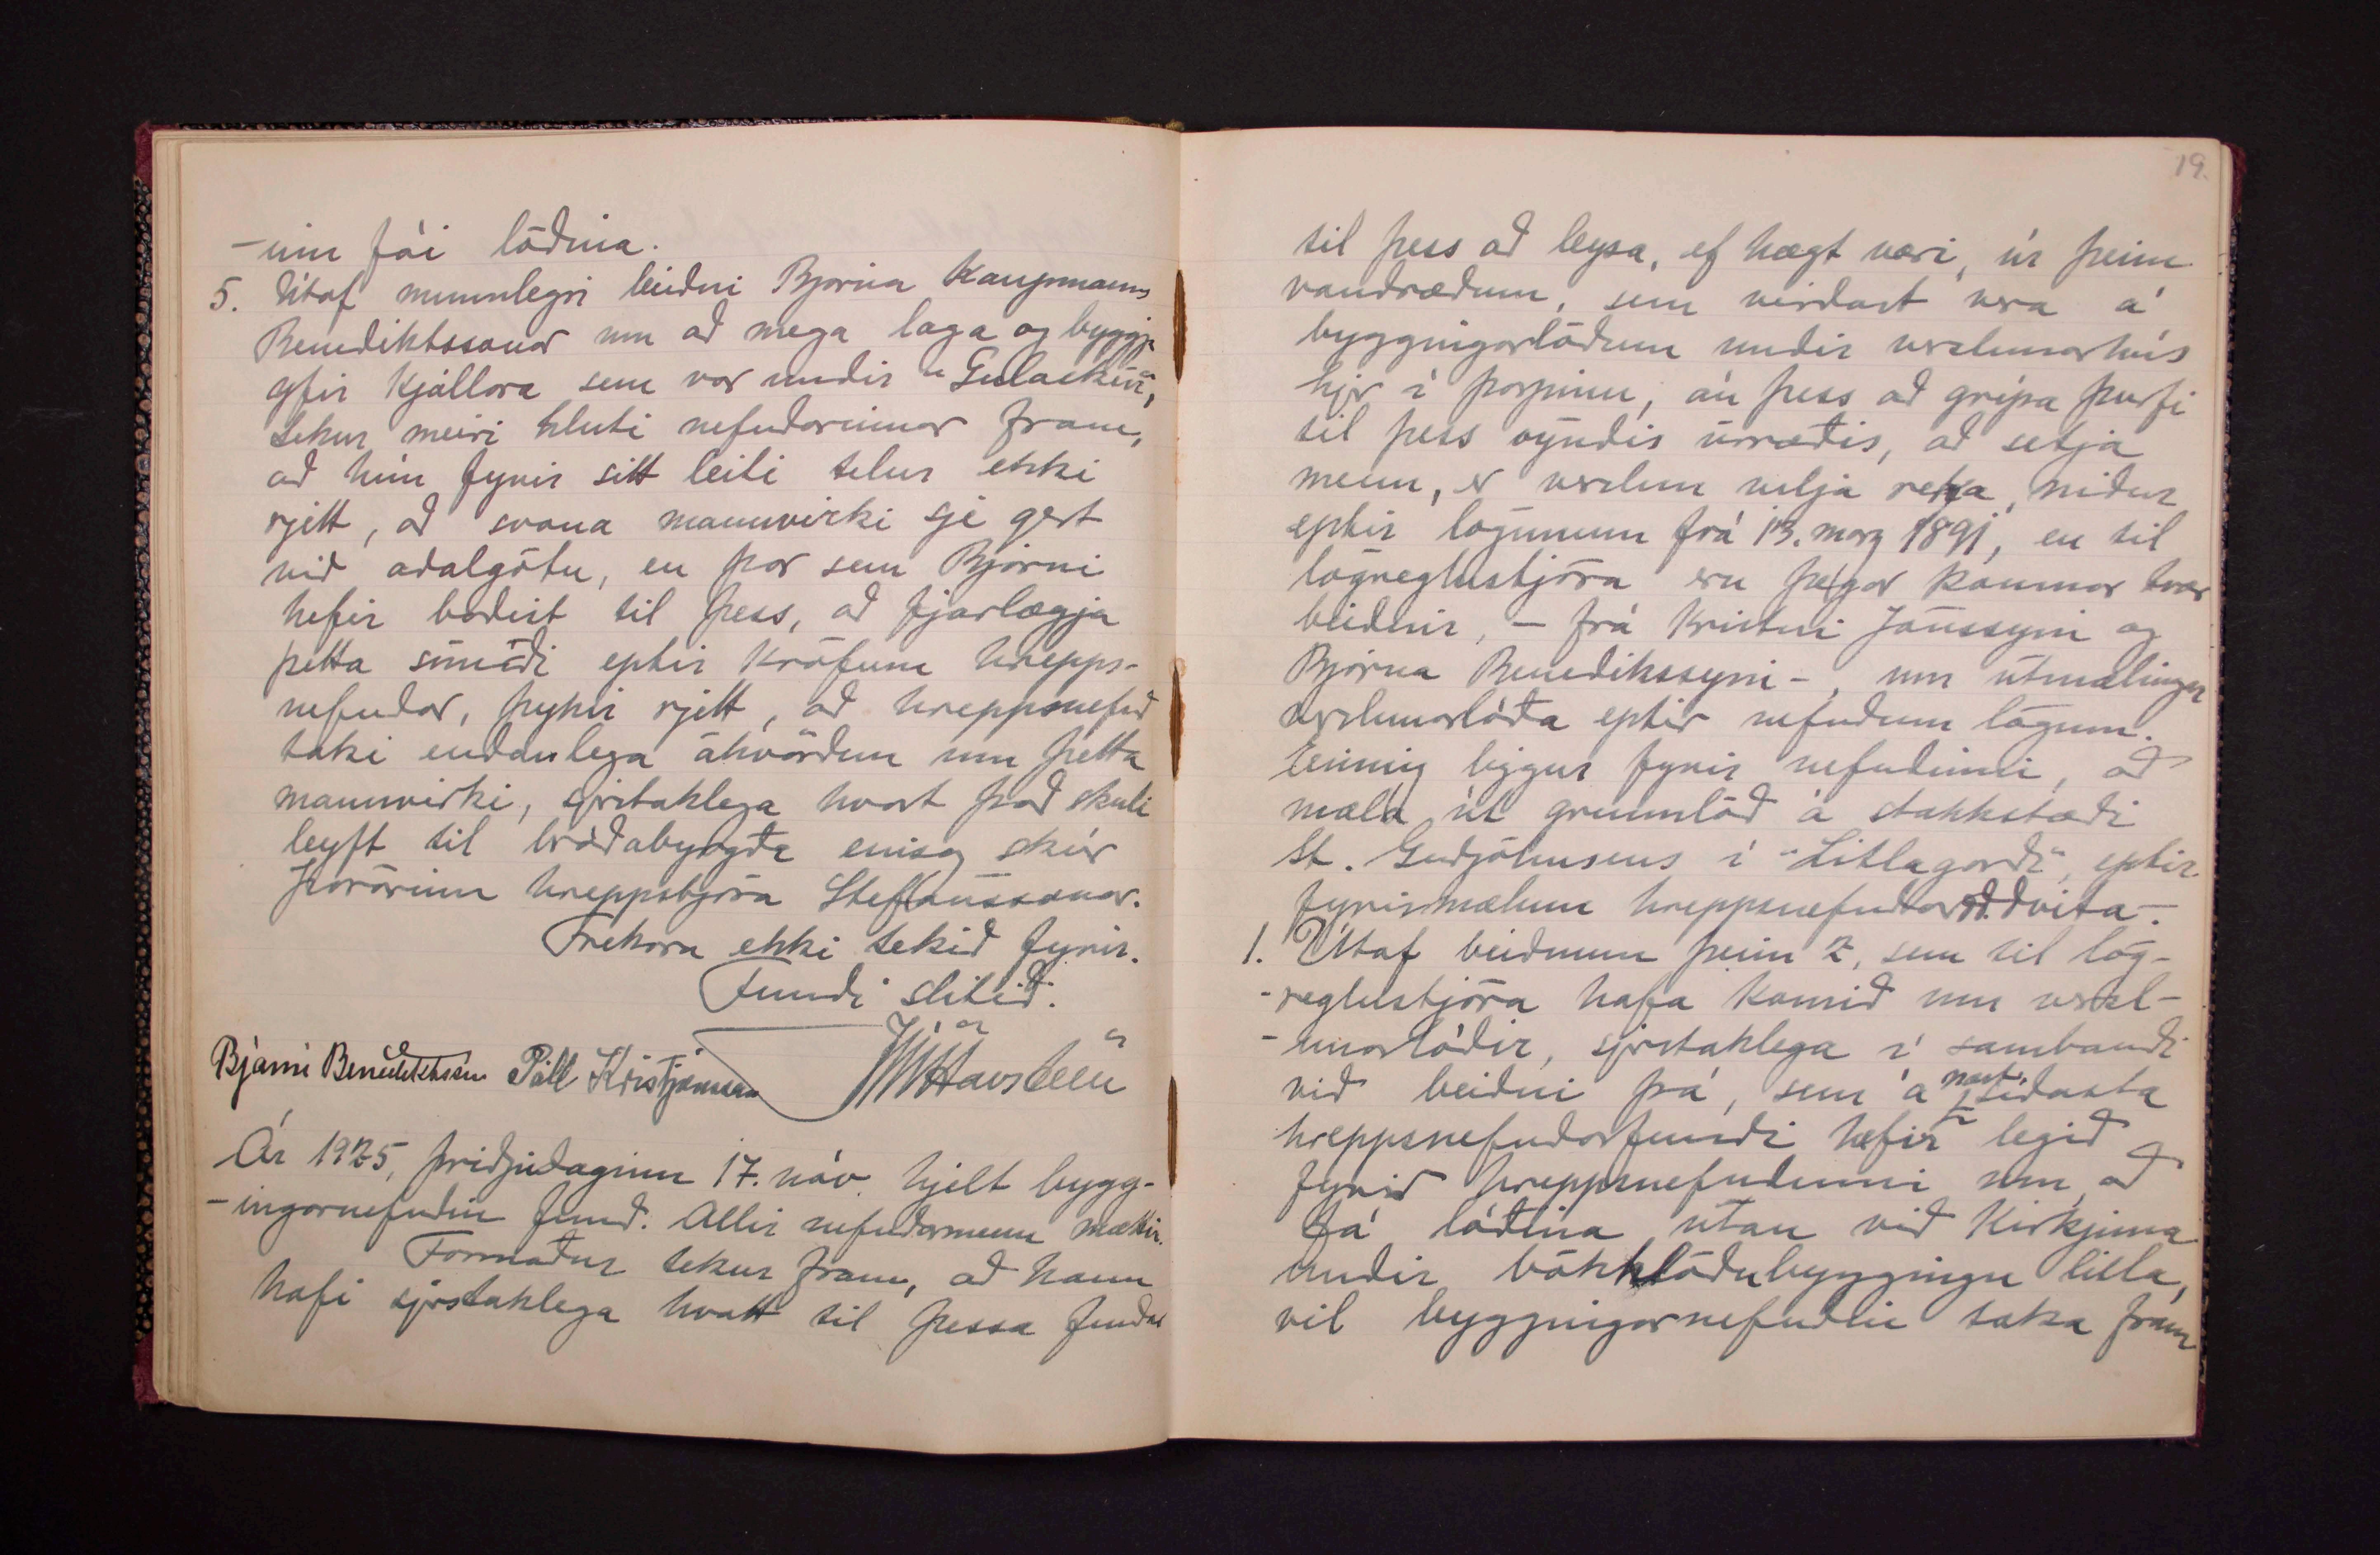 -um fái lóðina.
5. Útaf munnlegri beiðni Bjarna Kaupmanns
Benediktssonar um að mega laga og byggja
yfir kjallara sem var undir "Gulaskúr",
tekur meiri hluti nefndarinnar fram,
að hún fyrir sitt leiti telur ekki
rjett, að svona mannvirki sje gert
við aðalgötu, en þar sem Bjarni
hefir boðist til þess, að fjarlægja
þetta smíði eptir kröfum hrepps-
nefndar, þykir rjett, að hreppsnefnd
taki endanlega ákvörðun um þetta
mannvirki, sjerstaklega hvort það skuli
leyft til bráðabyrgða einsog skúr
Þórarinn hreppstjóra Stefánssonar.
Frekara ekki tekið fyrir.
Fundi slitið.
Bjarni Benediktsson Páll Kristjánsson JHavsteen
Ár 1925, þriðjudaginn 17. nóv. hjelt bygg-
-ingarnefndin fund. Allir nefndarmenn mættir.
Formaður tekur fram, að hann
hafi sjerstaklega hvatt til þessa fundar
19.
til þess að leysa, ef hægt væri, úr þeim
vandræðum, sem virðast vera á
byggingarlóðum undir verslunarhús
hjer í þorpinu, án þess að grípa þurfi
til þess óyndis úrræðis, að setja
menn, er verslun vilja reka, niður
eptir lögunum frá 13. marz 1891, en til
lögreglustjóra eru þegar komnar tvær
beiðnir, - frá Kristni Jónssyni og
Bjarna Benedikssyni -, um útmælingar
verslunarlóða eptir nefndum lögum.
Einnig liggur fyrir nefndinni, að
mæla út grunnlóð á stakkstæði
St. Guðjohnsens í "Litlagerði", eptir
fyrirmælum hreppsnefndaroddvita -.
1. Útaf beiðnum þeim 2, sem til lög-
-reglustjóra hafa komið um versl-
-unarlóðir, sjerstaklega í sambandi
við beiðni þá, sem á næst síðasta
hreppsnefndarfundi hefir legið
fyrir hreppsnefndinni um, að
fá lóðina utan við Kirkjuna
undir bókhlöðubyggingu litla,
vil byggingarnefndin taka fram